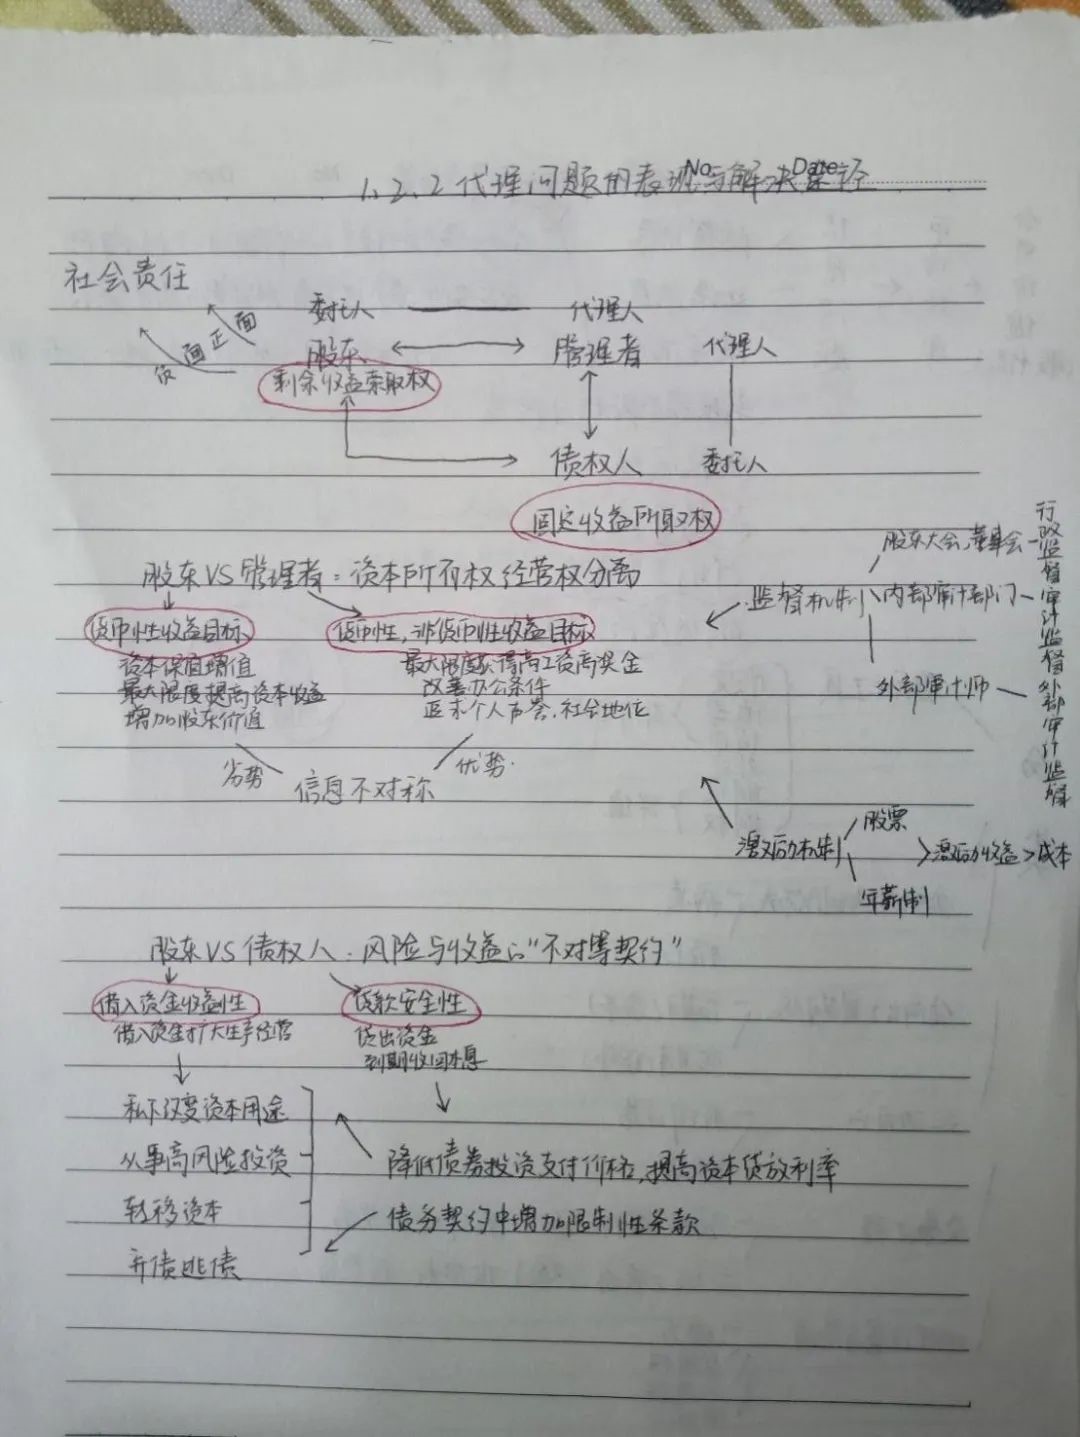 No Date
1.2.2 代理问题的表现与解决途径
社会责任
委托人 代理人
负面 正面
股东 管理者 代理人
剩余收益索取权
债权人 委托人
固定收益所取权
行政监督审计监督外部审计监督
股东大会,董事会
股东VS管理者:资本所有权经营权分离
监督机制 内部审计部门
货币性收益目标 货币性,非货币性收益目标
资本保值增值 最大限度获得高工资高奖金
最大限度提高资本收益 改善办公条件
增加股东价值 追求个人声誉,社会地位
外部审计师
劣势 信息不对称 优势
股票
激励机制 激励收益>成本
年薪制
股东VS债权人:风险与收益的“不对等契约”
借入资金收益性 贷款安全性
借入资金扩大生产经营 贷出资金
到期收回本息
私下改变资本用途
从事高风险投资 降低债券投资支付价格,提高资本贷放利率
转移资本 债务契约中增加限制性条款
弃债逃债